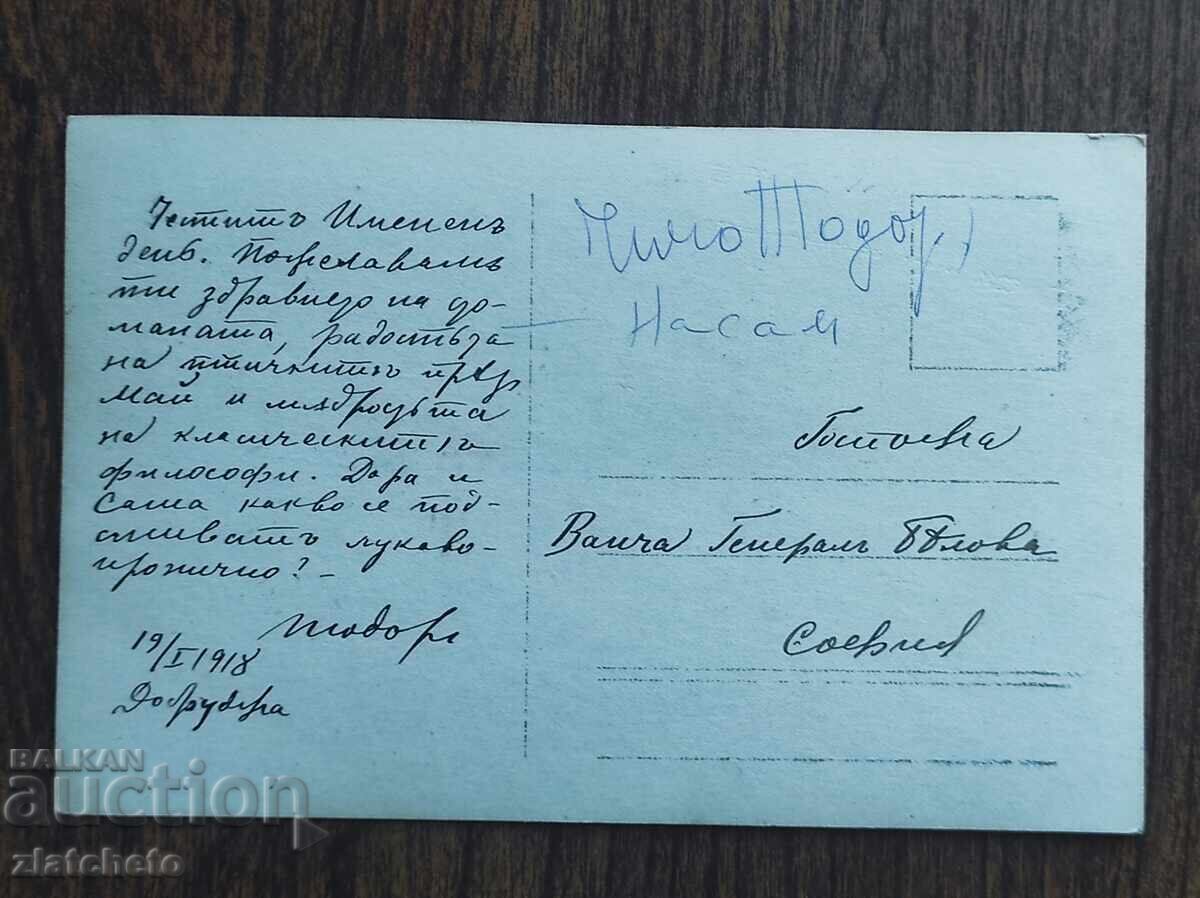 Честитъ Имененъ
день. Пожелавамъ
ти здравието на до-
маната, радостьта
на птичкитѣ прѣзъ
Май и мѫдростьта
на класическитѣ
философи. Дора и
Саша какво се под-
смиватъ лукаво-
иронично? –
Тодоръ
19/I 1918
Добруджа
Чичо Тодор
Насам
Госпожа
Ванча Генералъ Бѣлова
София
BALKAN
auction
zlatcheto